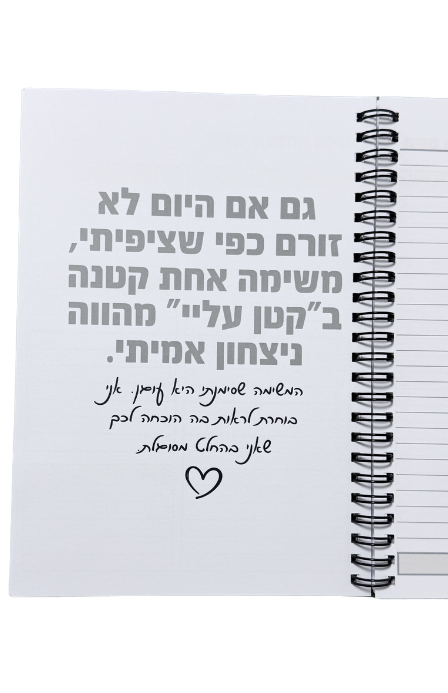 גם אם היום לא
זורם כפי שציפיתי,
משימה אחת קטנה
ב"קטן עליי" מהווה
ניצחון אמיתי.
המשימה שסימנתי היא עוגן. אני
בוחרת לראות בה הוכחה לכך
שאני בהחלט מסוגלת.